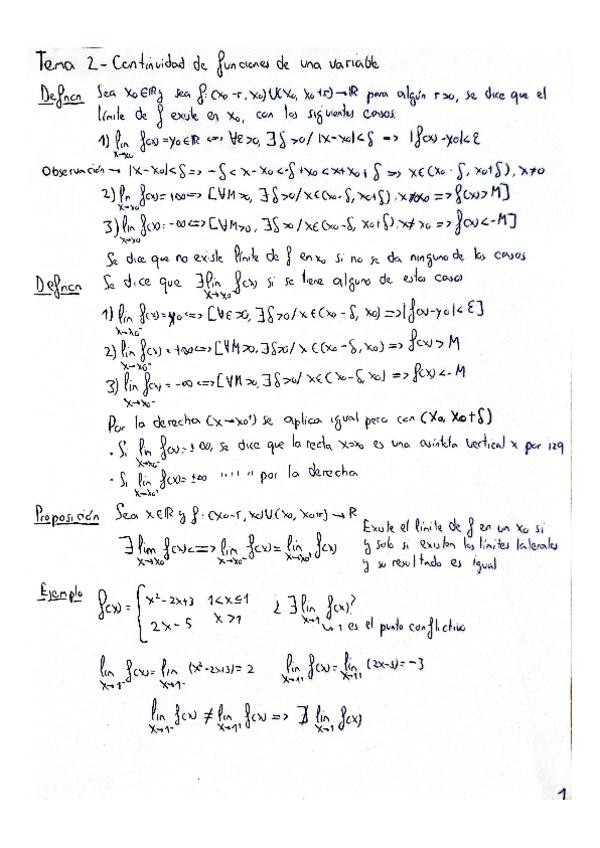 Tema 2 - Continuidad de funciones de una variable
Defncn Sea x₀∈ℝ y sea f: (x₀-r, x₀)∪(x₀, x₀+r)→ℝ para algún r>0, se dice que el
límite de f existe en x₀, con los siguientes casos
1) lim f(x)=y₀∈ℝ <=> ∀ε>0, ∃δ>0/ |x-x₀|<δ => |f(x)-y₀|<ε
x→x₀
Observación → |x-x₀|<δ => -δ<x-x₀<δ+x₀<x+x₀+δ => x∈(x₀-δ, x₀+δ), x≠0
2) lim f(x)=+∞ <=> [∀M>0, ∃δ>0/ x∈(x₀-δ, x₀+δ), x≠x₀ => f(x)>M]
x→x₀
3) lim f(x)=-∞ <=> [∀M>0, ∃δ>0/ x∈(x₀-δ, x₀+δ), x≠x₀ => f(x)<-M]
x→x₀
Se dice que no existe límite de f en x₀ si no se da ninguno de los casos
Defncn Se dice que ∃ lim f(x) si se tiene alguno de estos casos
x→x₀⁻
1) lim f(x)=y₀ <=> [∀ε>0, ∃δ>0/ x∈(x₀-δ, x₀) => |f(x)-y₀|<ε]
x→x₀⁻
2) lim f(x)=+∞ <=> [∀M>0, ∃δ>0/ x∈(x₀-δ, x₀) => f(x)>M
x→x₀⁻
3) lim f(x)=-∞ <=> [∀M>0, ∃δ>0/ x∈(x₀-δ, x₀) => f(x)<-M
x→x₀⁻
Por la derecha (x→x₀⁺) se aplica igual pero con (x₀, x₀+δ)
· Si lim f(x)=±∞, se dice que la recta x=x₀ es una asíntota vertical x por izq
x→x₀⁻
· Si lim f(x)=±∞ " " " " por la derecha
x→x₀⁺
Proposición Sea x∈ℝ y f: (x₀-r, x₀)∪(x₀, x₀+r)→ℝ
∃ lim f(x) <=> lim f(x) = lim f(x)
x→x₀ x→x₀⁻ x→x₀⁺
Existe el límite de f en un x₀ si
y solo si existen los límites laterales
y su resultado es igual
Ejemplo f(x)= { x²-2x+3 1<x≤1
2x-5 x>1
¿∃ lim f(x)?
x→1
↳ 1 es el punto conflictivo
lim f(x)= lim (x²-2x+3)=2 lim f(x)= lim (2x-5)=-3
x→1⁻ x→1⁻ x→1⁺ x→1⁺
lim f(x) ≠ lim f(x) => ∄ lim f(x)
x→1⁻ x→1⁺ x→1
1